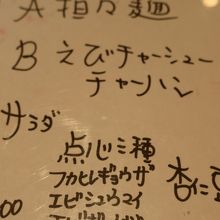 A 担々麺
B えびチャーシュー
チャーハン
サラダ
点心ミ種
フカヒレギョウザ
エビシュウマイ
杏仁
00